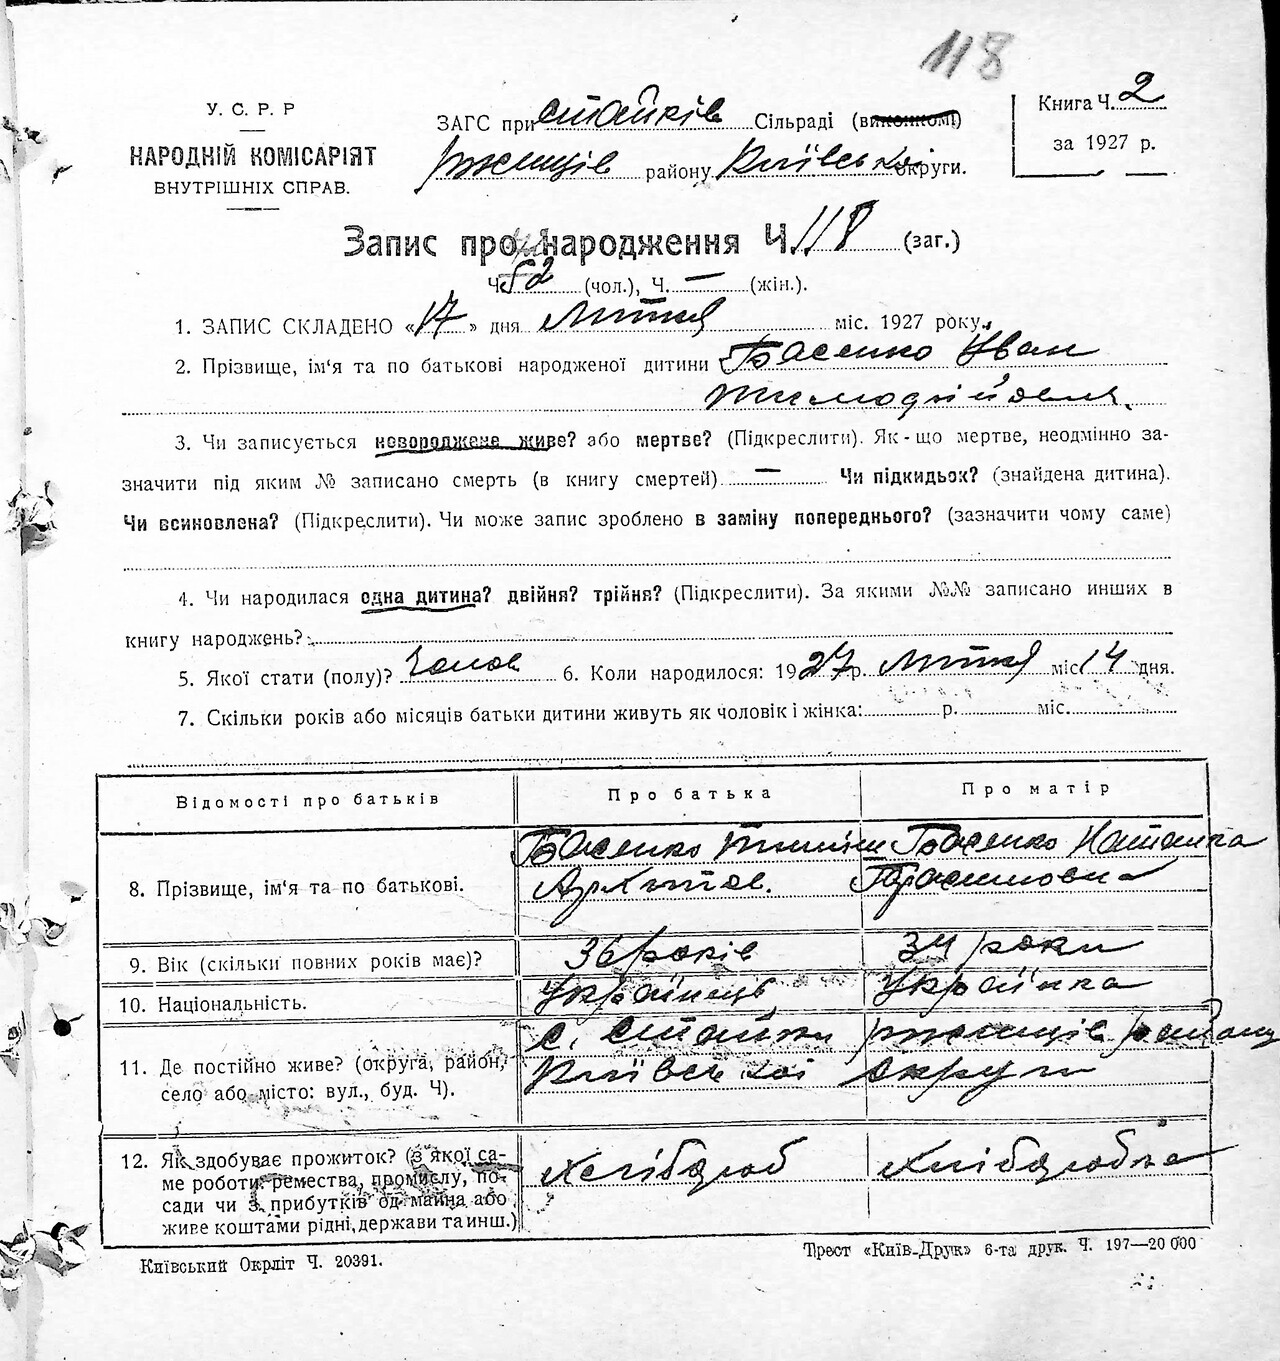 118
У. С. Р. Р
НАРОДНІЙ КОМІСАРІЯТ
ВНУТРІШНІХ СПРАВ.
ЗАГС при Стайків Сільраді (виконкомі)
Ржищів району Київської округи.
Книга Ч. 2
за 1927 р.
Запис про народження Ч. 118 (заг.)
Ч. 52 (чол.), Ч. — (жін.).
1. ЗАПИС СКЛАДЕНО «17» дня Лютня міс. 1927 року.
2. Прізвище, ім'я та по батькові народженої дитини Басенко Іван
Тимофійович
3. Чи записується новороджене живе? або мертве? (Підкреслити). Як-що мертве, неодмінно за-
значити під яким № записано смерть (в книгу смертей) — Чи підкидьок? (знайдена дитина).
Чи всиновлена? (Підкреслити). Чи може запис зроблено в заміну попереднього? (зазначити чому саме)
4. Чи народилася одна дитина? двійня? трійня? (Підкреслити). За якими №№ записано инших в
книгу народжень?
5. Якої стати (полу)? Чолов 6. Коли народилося: 1927 р. Лютня міс. 14 дня.
7. Скільки років або місяців батьки дитини живуть як чоловік і жінка: р. міс.
Відомості про батьків Про батька Про матір
8. Прізвище, ім'я та по батькові. Басенко Тиміш Басенко Наталка
Архипов. Герасимовна
9. Вік (скільки повних років має)? 36 років 34 роки
10. Національність. Українець Українка
11. Де постійно живе? (округа, район,
село або місто: вул., буд. Ч).
с. Стайки Ржищів району
Київської округи
12. Як здобуває прожиток? (з якої са-
ме роботи: ремества, промислу, по-
сади чи з прибутків од майна або
живе коштами рідні, держави та инш.)
Хлібороб Хліборобка
Київський Окрліт Ч. 20391.
Трест «Київ-Друк» 6-та друк. Ч. 197—20 000